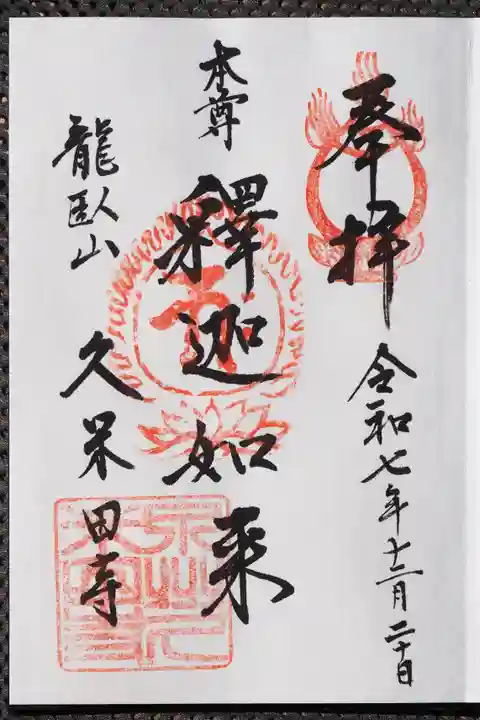 奉拝
令和七年十二月二十日
本尊
釋迦如来
龍臥山
久米田寺